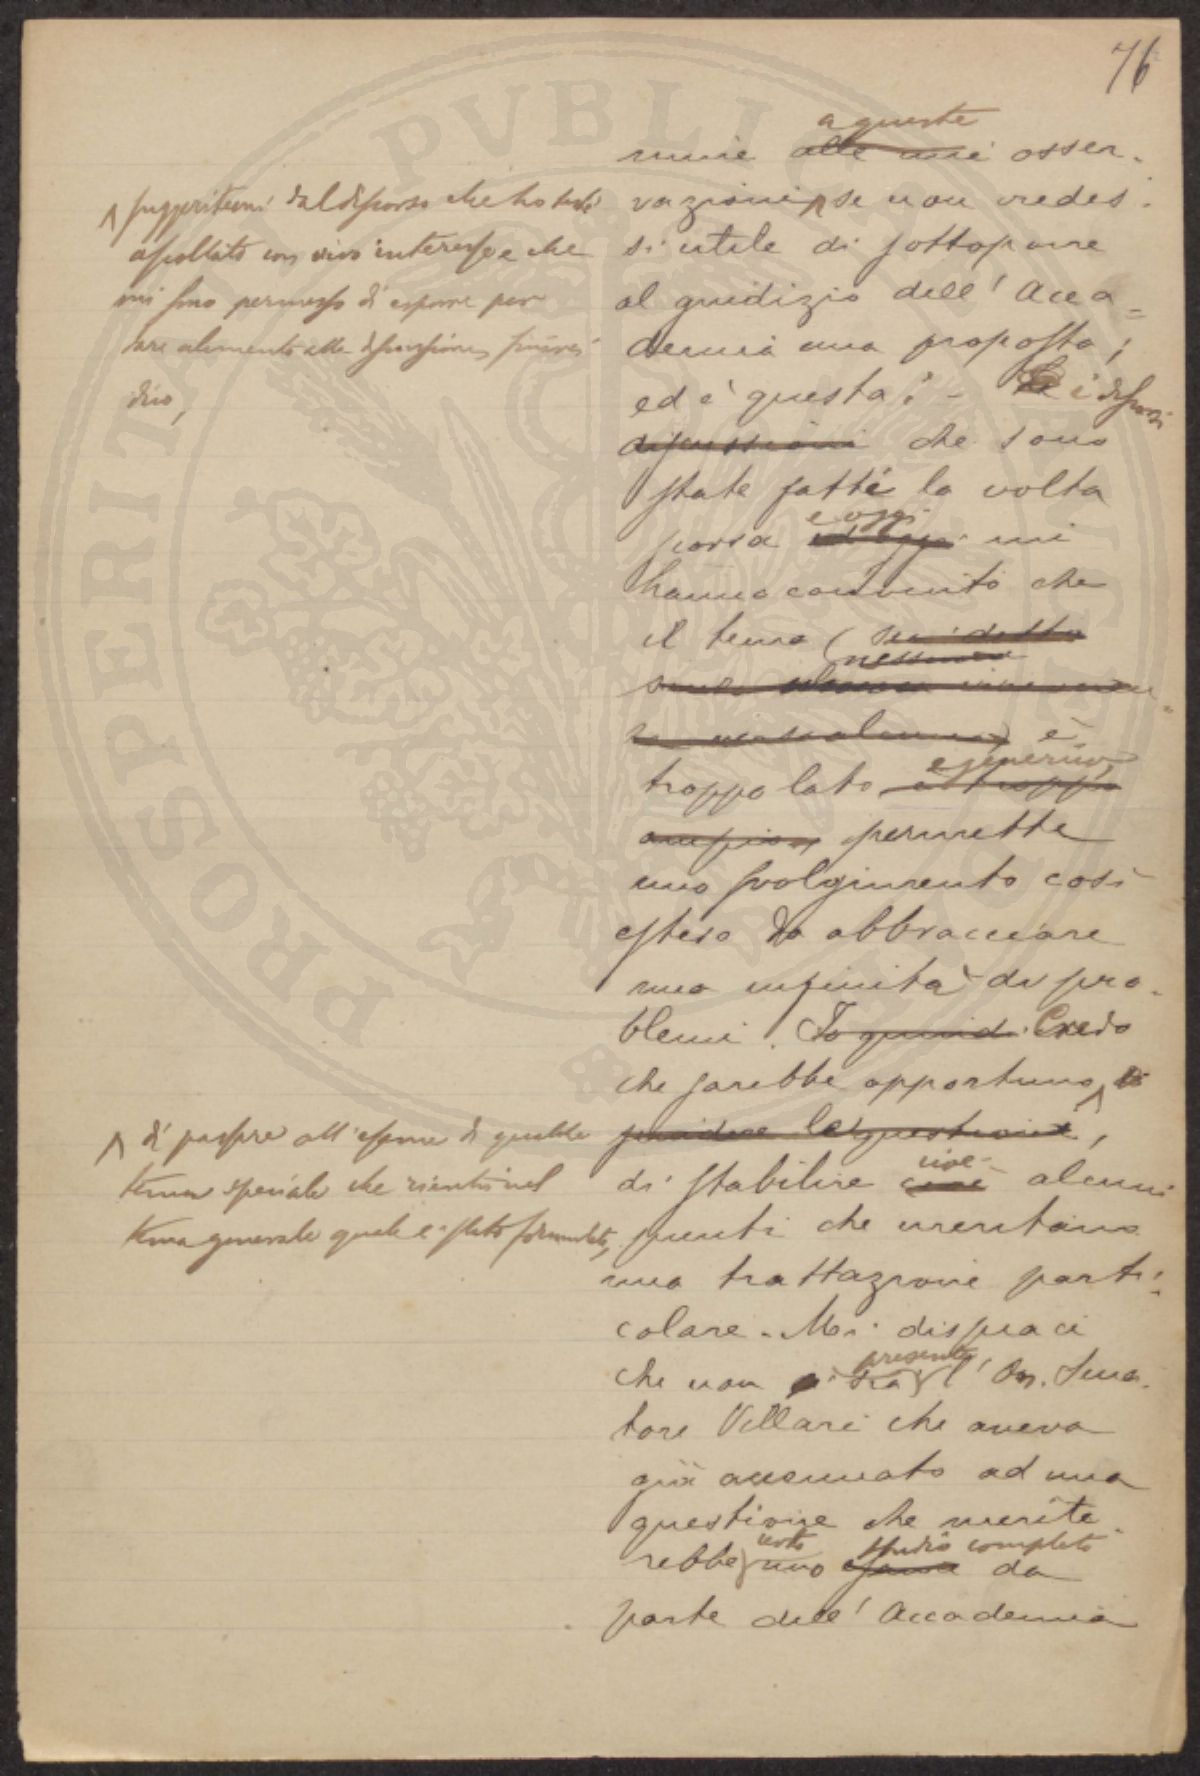 76
a queste
mine alle mie osser-
vazioni se non credes-
si utile di sottoporre
al giudizio dell' Acca-
demia una proposta;
ed è questa: - Le i discorsi
discussioni che sono
state fatte la volta
scorsa ed oggi e oggi mi
hanno convinto che
il tema (sia detto
senza nessuna
è
troppo lato e troppo e generico,
ampio, permette
uno svolgimento così
esteso da abbracciare
una infinità di pro-
blemi. Io quindi Credo
che sarebbe opportuno, di
scindere le questioni,
di stabilire cioè alcuni
punti che meritano
una trattazione parti-
colare. Mi dispiace
che non sia presente l' On. Sena-
tore Villari che aveva
già accennato ad una
questione che merite-
rebbe certo uno esame studio completo da
parte dell' Accademia
suggeritemi dal discorso che ho testé
ascoltato con vivo interesse e che
mi sono permesso di esporre per
dare alimento alla discussione,
di passare all'esame di qualche
tema speciale che rientri nel
tema generale quale è stato formulato,
PVBLICAE
PROSPERITATI